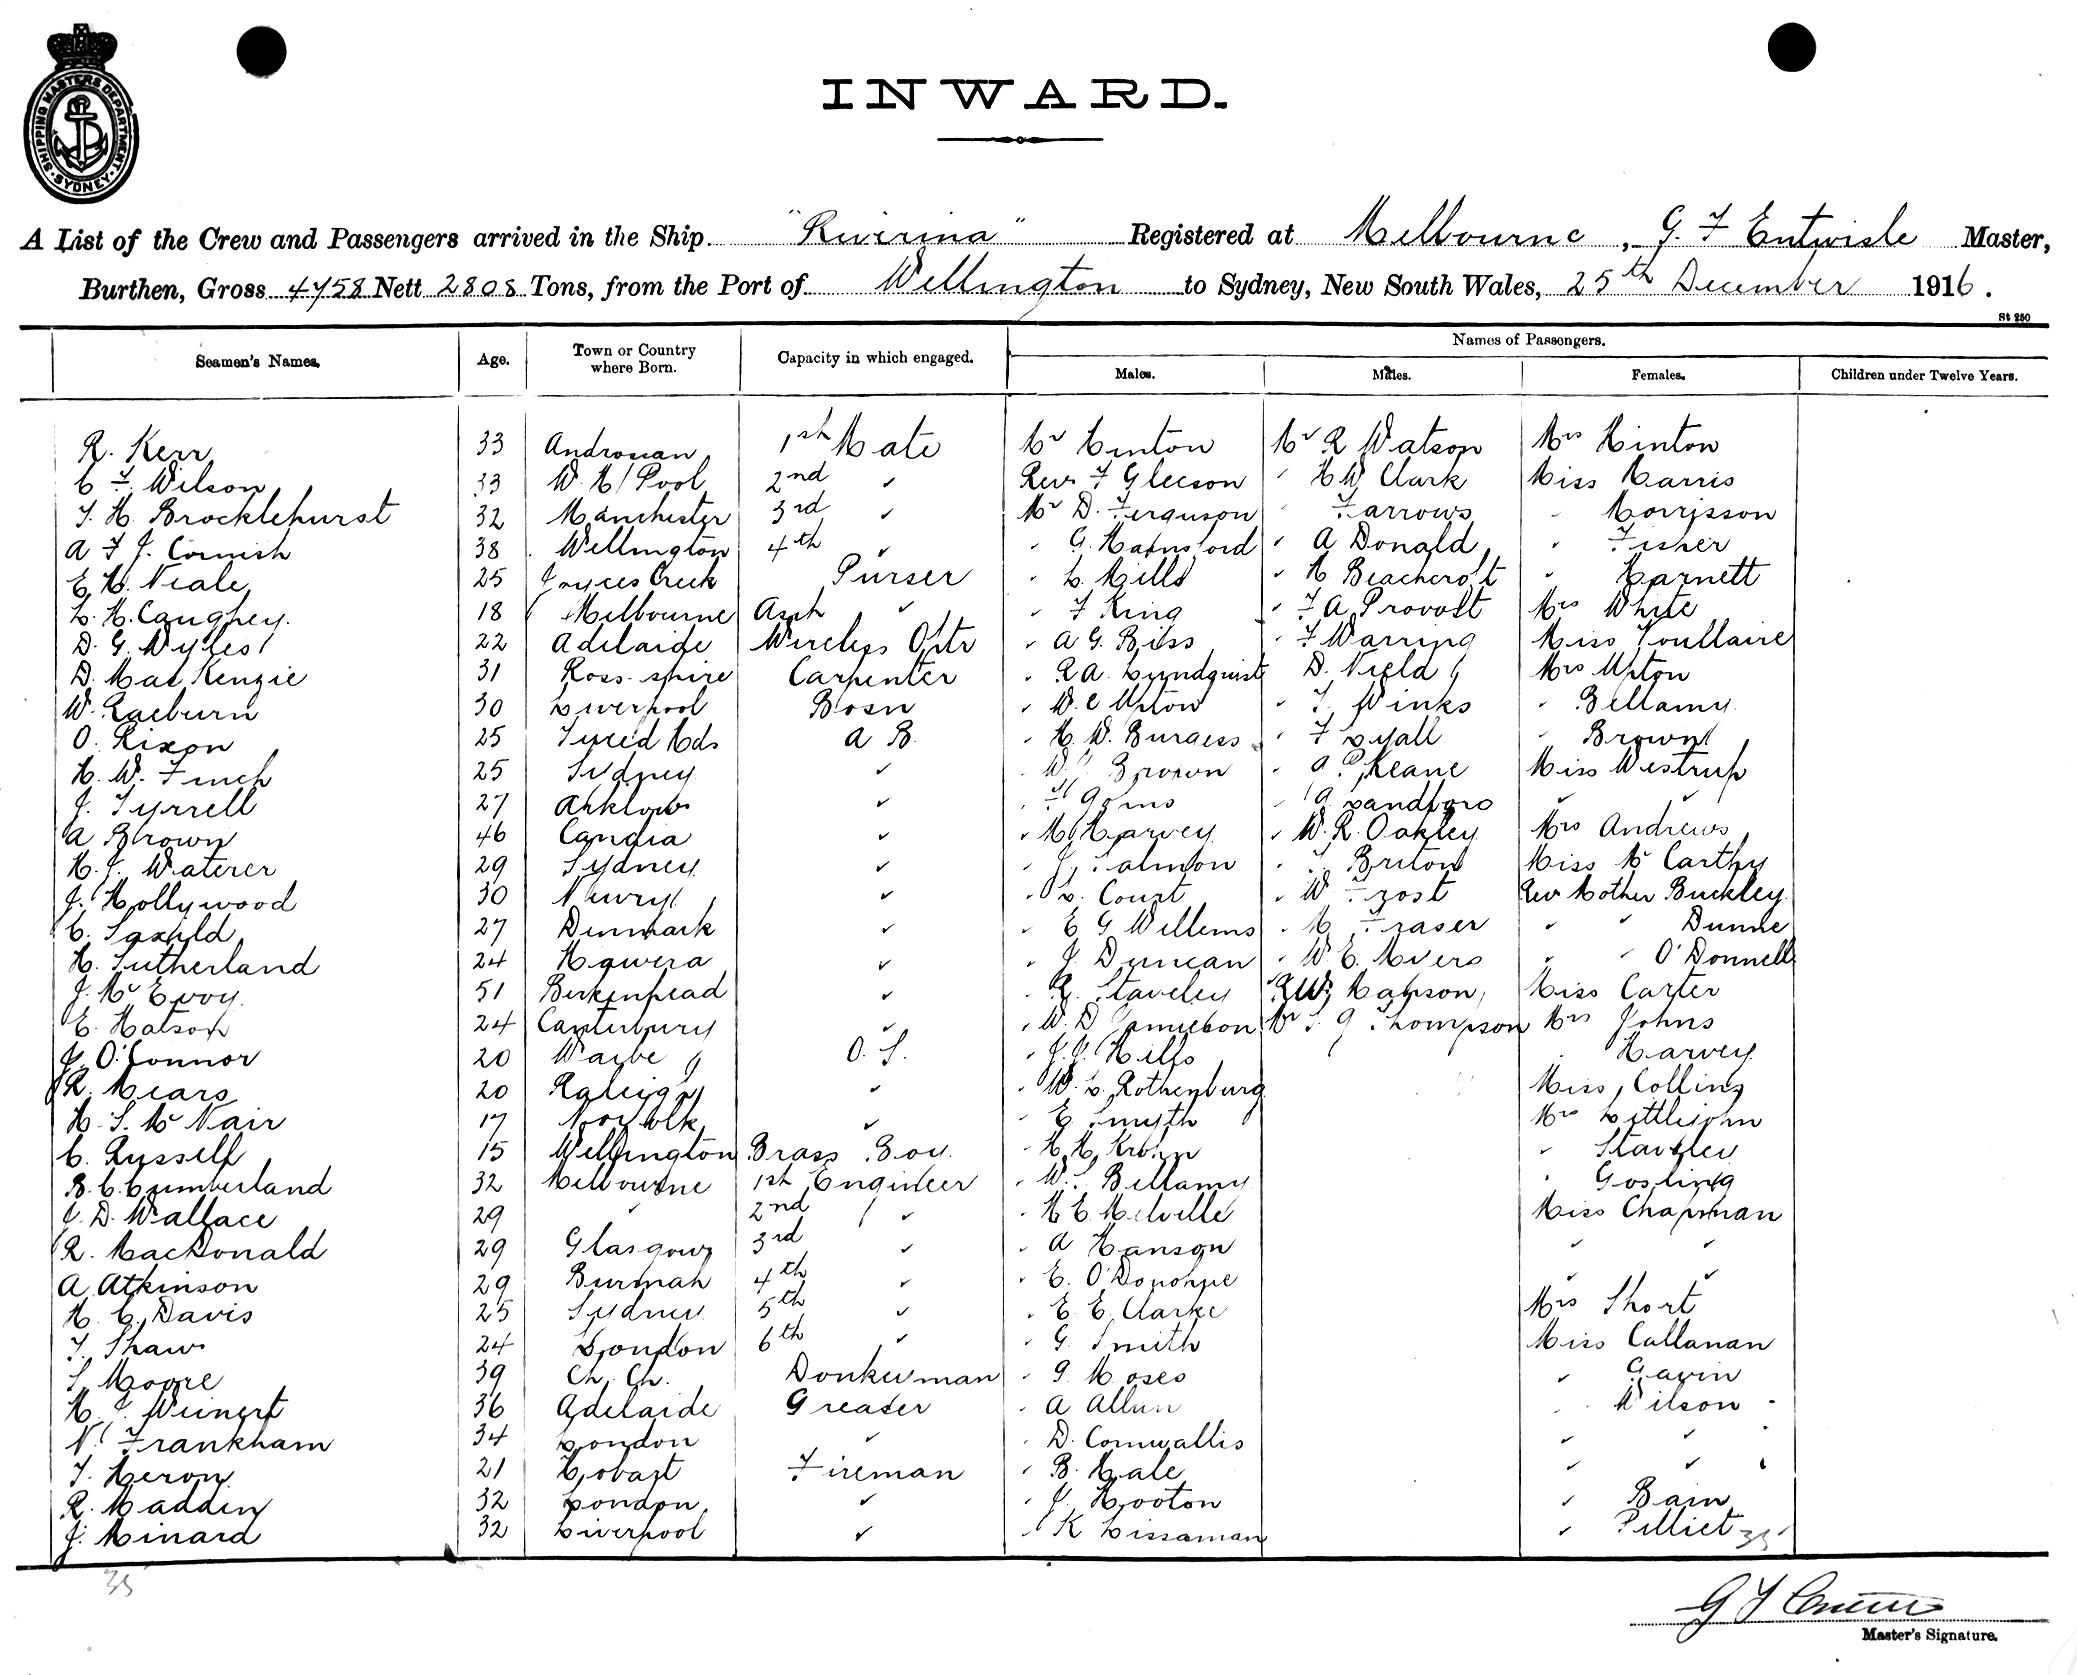 SHIPPING MASTERS DEPARTMENT. SYDNEY.
INWARD.
A List of the Crew and Passengers arrived in the Ship "Riverina" Registered at Melbourne, G. F Entwisle Master,
Burthen, Gross 4758 Nett 2808 Tons, from the Port of Wellington to Sydney, New South Wales, 25th December 1916.
St 250
Names of Passengers.
Seamen's Names. Age. Town or Country where Born. Capacity in which engaged. Males. Males. Females. Children under Twelve Years.
R. Kerr 33 Androssan 1st Mate Mr Hinton Mr R Watson Mrs Hinton
C F. Wilson 33 W. H/Pool 2nd " Rev. F Gleeson " H W Clark Miss Harris
T. H. Brocklehurst 32 Manchester 3rd " Mr D. Ferguson " Farrows " Morrisson
A F J. Cornish 38 Wellington 4th " " G. Hainsford " A Donald " Fisher
E. H. Neale 25 Joyces Creek Purser " L. Mills " H Beachcroft " Harnett
L. H. Caughey. 18 Melbourne Asst " " F King " F A Provost Mrs White
D. G. Wyles 22 Adelaide Wireless Optr " A G. Bilss " F Warring Miss Toullaire
D. MacKenzie 31 Ross-shire Carpenter " R A. Lyndquist D. Nield Mrs Upton
W. Raeburn 30 Liverpool Bosn " W. C Upton " T. Winks " Bellamy
O. Rixon 25 Tweed Hds A B. " H. W. Burgess " F Lyall " Brown
H. W. Finch 25 Sydney " " W. Brown " P. Keane Miss Westrup
J. Tyrrell 27 Arklow " " " A Sandford " "
A Brown 46 Candia " " M Harvey " W. R. Oakley Mrs Andrews
H. J. Waterer 29 Sydney " " J. Salmon " T. Briton Miss McCarthy
J. Hollywood 30 Newry " " L. Court " W Frost Rev Mother Buckley
C. Saxild 27 Denmark " " E G Willems " M Fraser " " Dunne
H. Sutherland 24 Hawera " " J. Duncan " W. E. Myers " " O'Donnell
J. McEvoy. 51 Birkenhead " " R. Staveley R W. Hanson Miss Carter
E. Hatson 24 Canterbury " " W. D Jamieson Mr S. G Thompson Mrs Johns
J. O'Connor 20 Waybe O. S. " J. J. Hills " Harvey
R. Mears 20 Raleigh " " W. L. Rothenburg Miss Collins
H. S. McNair 17 Norfolk " " E Smyth Mrs Littlejohn
C. Russell 15 Wellington Brass Boy. " H. H. Krohn " Staveley
B. C. Cumberland 32 Melbourne 1st Engineer " W. S. Bellamy " Gosling
J. D. Wallace 29 " 2nd " " H E. Melville Miss Chapman
R. MacDonald 29 Glasgow 3rd " " A Hanson " "
A Atkinson 29 Burmah 4th " " E. O'Donohue " "
H. C. Davis 25 Sydney 5th " " E. E. Clarke Mrs Short
T. Shaw 24 London 6th " " G. Smith Miss Callanan
S. Moore 39 Ch. Ch. Donkeyman " G. Moses " Gavin
H. J. Weinert 36 Adelaide Greaser " A Allan " Wilson
N. Frankham 34 London " " D. Cornwallis " "
T. Heron 21 Hobart Fireman " B. Hale " "
R. Madden 32 London " " J. Hooton " Bain
J. Minard 32 Liverpool " " K Lissaman " Pilliet 35
35
Master's Signature.